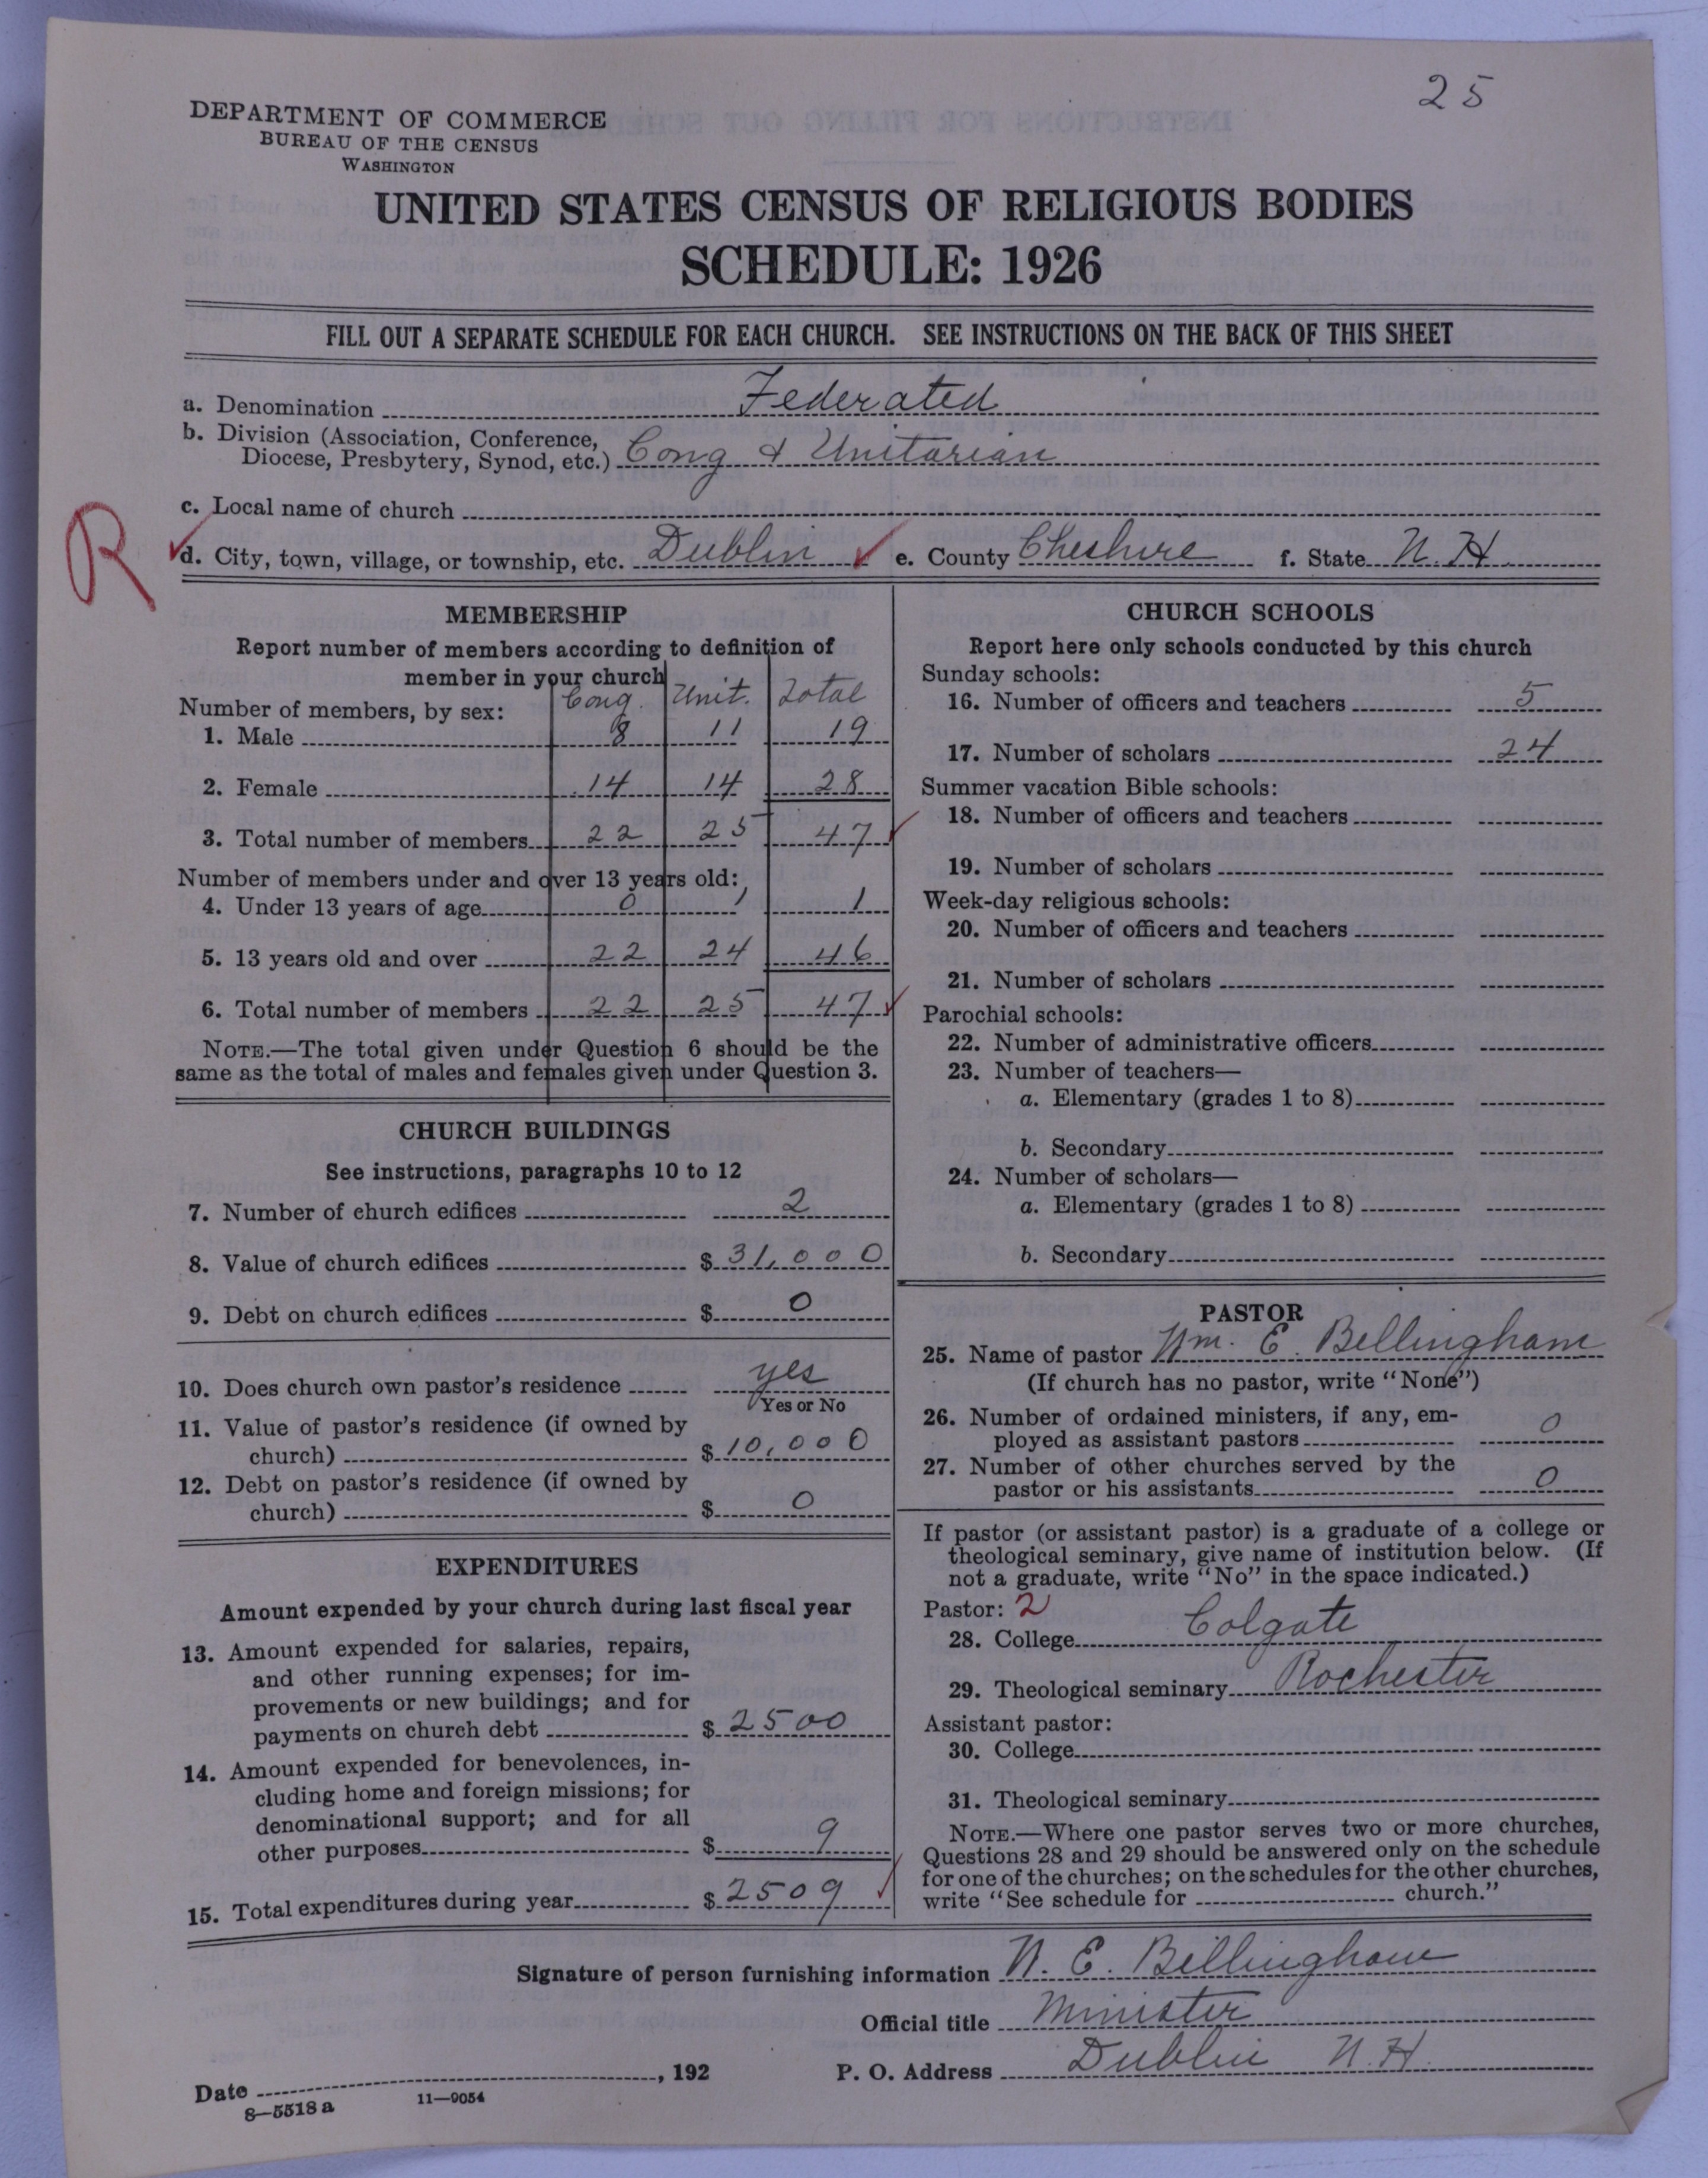 25
DEPARTMENT OF COMMERCE
BUREAU OF THE CENSUS
WASHINGTON
UNITED STATES CENSUS OF RELIGIOUS BODIES
SCHEDULE: 1926
FILL OUT A SEPARATE SCHEDULE FOR EACH CHURCH. SEE INSTRUCTIONS ON THE BACK OF THIS SHEET
a. Denomination Federated
b. Division (Association, Conference,
Diocese, Presbytery, Synod, etc.) Cong & Unitarian
c. Local name of church
R
d. City, town, village, or township, etc. Dublin e. County Cheshire f. State N.H.
MEMBERSHIP
Report number of members according to definition of
member in your church
Cong. Unit. Total
Number of members, by sex:
1. Male 8 11 19
2. Female 14 14 28
3. Total number of members 22 25 47
Number of members under and over 13 years old:
4. Under 13 years of age 0 1 1
5. 13 years old and over 22 24 46
6. Total number of members 22 25 47
NOTE.—The total given under Question 6 should be the
same as the total of males and females given under Question 3.
CHURCH BUILDINGS
See instructions, paragraphs 10 to 12
7. Number of church edifices 2
8. Value of church edifices $31,000
9. Debt on church edifices $ 0
10. Does church own pastor's residence yes
Yes or No
11. Value of pastor's residence (if owned by
church) $10,000
12. Debt on pastor's residence (if owned by
church) $ 0
EXPENDITURES
Amount expended by your church during last fiscal year
13. Amount expended for salaries, repairs,
and other running expenses; for im-
provements or new buildings; and for
payments on church debt $2500
14. Amount expended for benevolences, in-
cluding home and foreign missions; for
denominational support; and for all
other purposes $ 9
15. Total expenditures during year $2509
CHURCH SCHOOLS
Report here only schools conducted by this church
Sunday schools:
16. Number of officers and teachers 5
17. Number of scholars 24
Summer vacation Bible schools:
18. Number of officers and teachers
19. Number of scholars
Week-day religious schools:
20. Number of officers and teachers
21. Number of scholars
Parochial schools:
22. Number of administrative officers
23. Number of teachers—
a. Elementary (grades 1 to 8)
b. Secondary
24. Number of scholars—
a. Elementary (grades 1 to 8)
b. Secondary
PASTOR
25. Name of pastor Wm. E. Bellingham
(If church has no pastor, write "None")
26. Number of ordained ministers, if any, em-
ployed as assistant pastors 0
27. Number of other churches served by the
pastor or his assistants 0
If pastor (or assistant pastor) is a graduate of a college or
theological seminary, give name of institution below. (If
not a graduate, write "No" in the space indicated.)
Pastor: 2
28. College Colgate
29. Theological seminary Rochester
Assistant pastor:
30. College
31. Theological seminary
NOTE.—Where one pastor serves two or more churches,
Questions 28 and 29 should be answered only on the schedule
for one of the churches; on the schedules for the other churches,
write "See schedule for church."
Signature of person furnishing information W. E. Bellingham
Official title Minister
Date , 192 P. O. Address Dublin N.H.
8—5518 a 11—9054